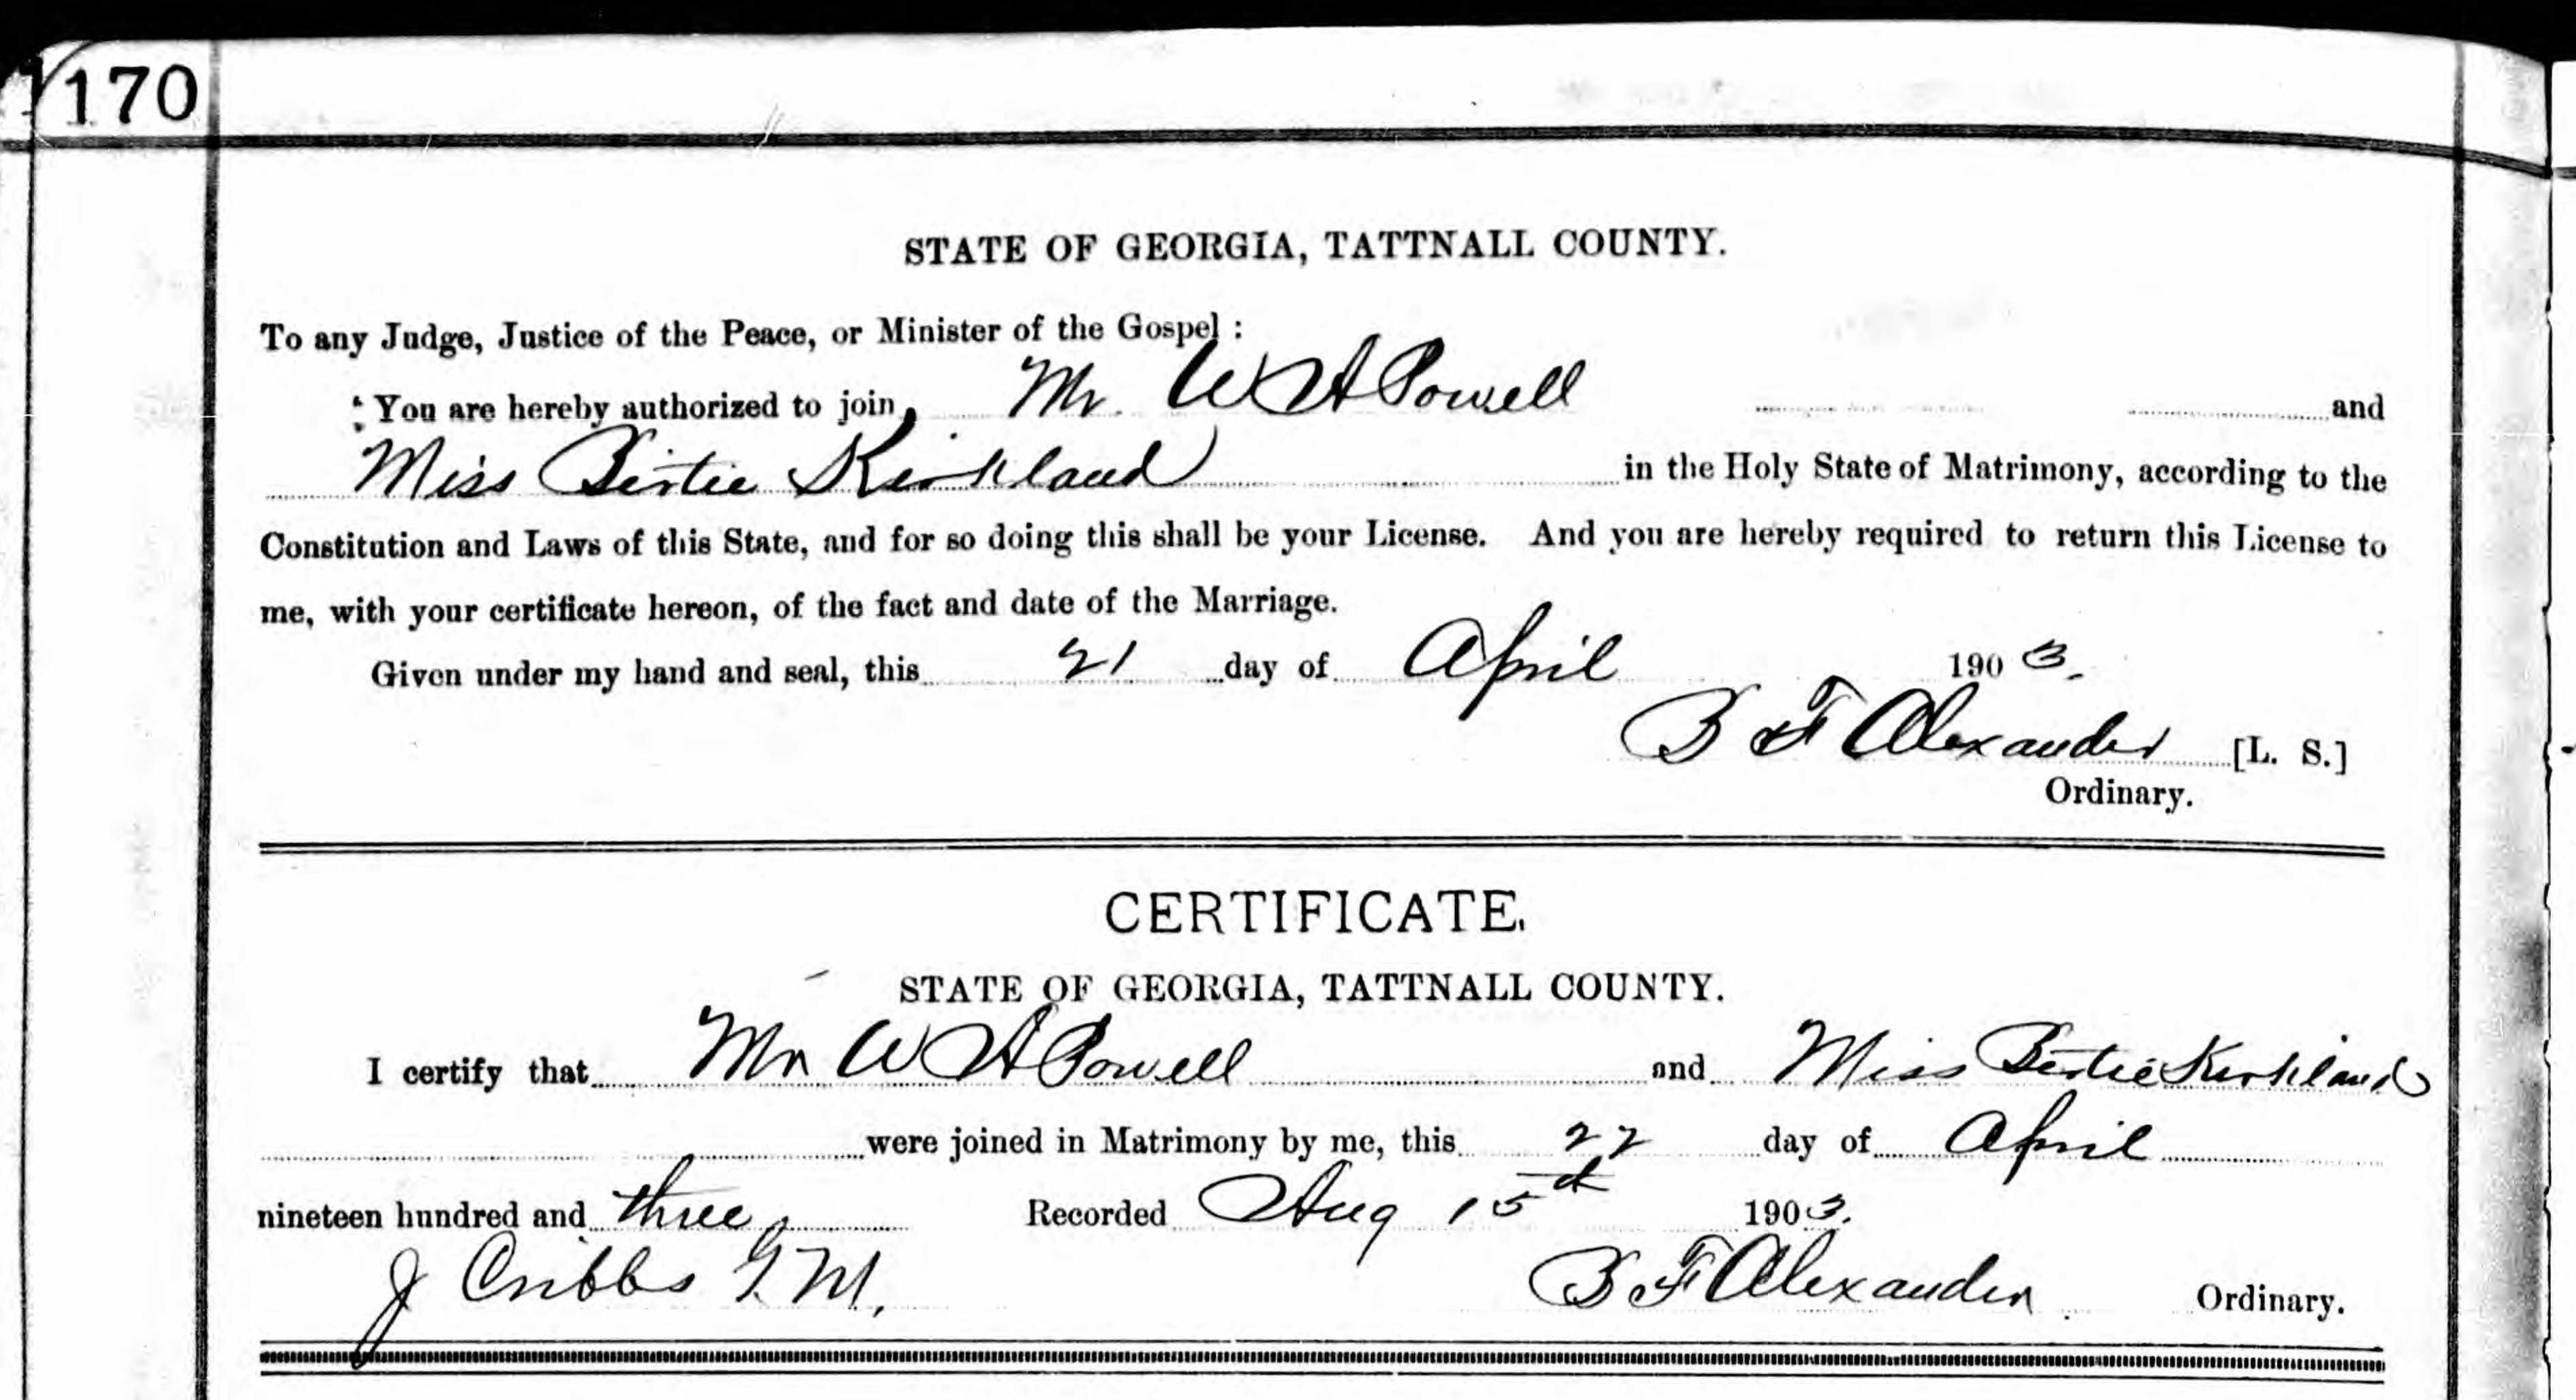 170
STATE OF GEORGIA, TATTNALL COUNTY.
To any Judge, Justice of the Peace, or Minister of the Gospel :
You are hereby authorized to join, Mr. W A Powell and
Miss Birtie Kirkland in the Holy State of Matrimony, according to the
Constitution and Laws of this State, and for so doing this shall be your License. And you are hereby required to return this License to
me, with your certificate hereon, of the fact and date of the Marriage.
Given under my hand and seal, this 21 day of April 1903.
B F Alexander [L. S.]
Ordinary.
CERTIFICATE.
STATE OF GEORGIA, TATTNALL COUNTY.
I certify that Mr W A Powell and Miss Birtie Kirkland
were joined in Matrimony by me, this 22 day of April
nineteen hundred and three, Recorded Aug 15th 1903.
J Cribbs G.M. B F Alexander Ordinary.